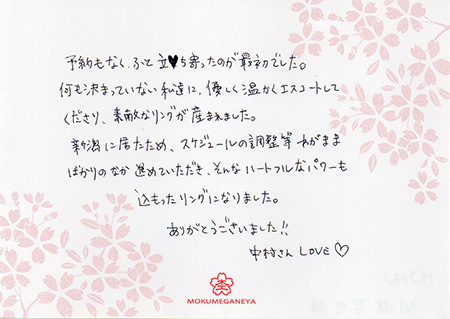 予約もなく、ふと立♥ち寄ったのが最初でした。
何も決まっていない私達に、優しく温かくエスコートして
くださり、素敵なリングが産まれました。
新潟に居たため、スケジュールの調整等 わがまま
ばかりのなか 進めていただき、そんなハートフルなパワーも
込もったリングになりました。
ありがとうございました!!
中村さん LOVE♡
MOKUMEGANEYA